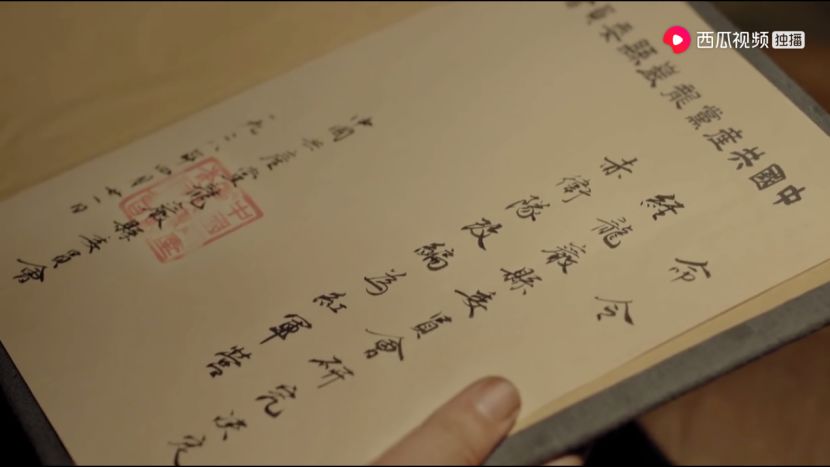 西瓜视频 独播
中國共產黨龍巖縣委員
命令
經龍巖縣委員會研究決定
赤衛隊改編為紅軍營
中國共產黨龍巖縣委員會
一九二八年四月廿一日